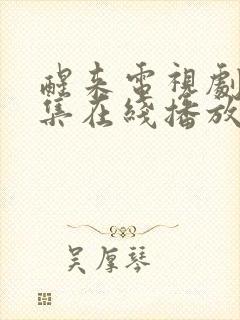 醒来電視劇
集在綫播放
吴厚琴